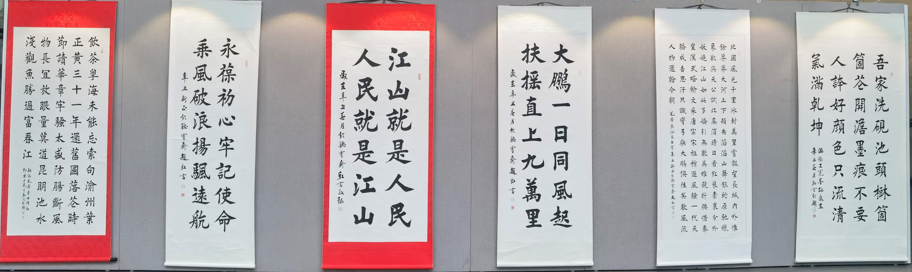 飲茶粵海未能忘索句渝州葉
正黃三十一年還舊國落花時
節讀華章牢騷太盛防腸斷風
物長宜放眼量莫道昆明池水
淺觀魚勝過富春江
永葆初心牢記使命
乘風破浪揚颿遠航
江山就是人民
人民就是江山
大鵬一日同風起
扶摇直上九萬里
北國風光千里冰封萬里雪飄望長城內外惟
餘莽莽大河上下頓失滔滔山舞銀蛇原馳蠟
象欲與天公試比高須晴日看紅裝素裹分外
妖嬈江山如此多嬌引無數英雄競折腰惜秦
皇漢武略輸文采唐宗宋祖稍遜風騷一代天
驕成吉思汗只識彎弓射大雕俱往矣數風流
人物還看今朝
吾家洗硯池頭樹箇
箇花開澹墨痕不要
人誇好顏色只流清
氣滿乾坤